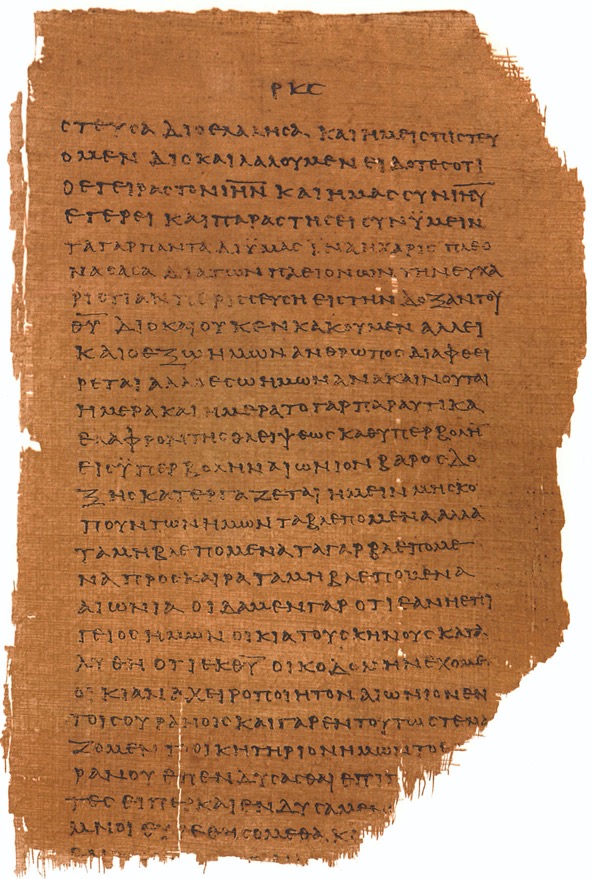 ΡΚϚ
ϹΤΕΥϹΑ ΔΙΟ ΕΛΑΛΗϹΑ ΚΑΙ ΗΜΕΙϹ ΠΙϹΤΕΥ
ΟΜΕΝ ΔΙΟ ΚΑΙ ΛΑΛΟΥΜΕΝ ΕΙΔΟΤΕϹ ΟΤΙ
Ο ΕΓΕΙΡΑϹ ΤΟΝ Ι̅Η̅Ν̅ ΚΑΙ ΗΜΑϹ ϹΥΝ Ι̅Η̅Υ̅
ΕΓΕΡΕΙ ΚΑΙ ΠΑΡΑϹΤΗϹΕΙ ϹΥΝ ΫΜΕΙΝ
ΤΑ ΓΑΡ ΠΑΝΤΑ ΔΙ ΫΜΑϹ ΪΝΑ Η ΧΑΡΙϹ ΠΛΕΟ
ΝΑϹΑϹΑ ΔΙΑ ΤΩΝ ΠΛΕΙΟΝΩΝ ΤΗΝ ΕΥΧΑ
ΡΙϹΤΙΑΝ ΠΕΡΙϹϹΕΥϹΗ ΕΙϹ ΤΗΝ ΔΟΞΑΝ ΤΟΥ
Θ̅Υ̅ ΔΙΟ ΚΑΙ ΟΥΚ ΕΝΚΑΚΟΥΜΕΝ ΑΛΛ ΕΙ
ΚΑΙ Ο ΕΞΩ ΗΜΩΝ ΑΝΘΡΩΠΟϹ ΔΙΑΦΘΕΙ
ΡΕΤΑΙ ΑΛΛ Ο ΕϹΩ ΗΜΩΝ ΑΝΑΚΑΙΝΟΥΤΑΙ
ΗΜΕΡΑ ΚΑΙ ΗΜΕΡΑ ΤΟ ΓΑΡ ΠΑΡΑΥΤΙΚΑ
ΕΛΑΦΡΟΝ ΤΗϹ ΘΛΕΙΨΕΩϹ ΚΑΘ ΥΠΕΡΒΟΛΗ̅
ΕΙϹ ΫΠΕΡΒΟΛΗΝ ΑΙΩΝΙΟΝ ΒΑΡΟϹ ΔΟ
ΞΗϹ ΚΑΤΕΡΓΑΖΕΤΑΙ ΗΜΕΙΝ ΜΗ ϹΚΟ
ΠΟΥΝΤΩΝ ΗΜΩΝ ΤΑ ΒΛΕΠΟΜΕΝΑ ΑΛΛΑ
ΤΑ ΜΗ ΒΛΕΠΟΜΕΝΑ ΤΑ ΓΑΡ ΒΛΕΠΟΜΕ
ΝΑ ΠΡΟϹΚΑΙΡΑ ΤΑ ΜΗ ΒΛΕΠΟΜΕΝΑ
ΑΙΩΝΙΑ ΟΙΔΑΜΕΝ ΓΑΡ ΟΤΙ ΕΑΝ Η ΕΠΙ
ΓΕΙΟϹ ΗΜΩΝ ΟΙΚΙΑ ΤΟΥ ϹΚΗΝΟΥϹ ΚΑΤΑ
ΛΥΘΗ ΟΤΙ ΕΚ Θ̅Υ̅ ΟΙΚΟΔΟΜΗΝ ΕΧΟΜΕ
ΟΙΚΙΑΝ ΑΧΕΙΡΟΠΟΙΗΤΟΝ ΑΙΩΝΙΟΝ ΕΝ
ΤΟΙϹ ΟΥΡΑΝΟΙϹ ΚΑΙ ΓΑΡ ΕΝ ΤΟΥΤΩ ϹΤΕΝΑ
ΖΟΜΕΝ ΤΟ ΟΙΚΗΤΗΡΙΟΝ ΗΜΩΝ ΤΟ Ε
ΡΑΝΟΥ ΕΠΕΝΔΥϹΑϹΘΑΙ ΕΠΙΠ
ΤΕϹ ΕΙΠΕΡ ΚΑΙ ΕΝΔΥϹΑΜΕΝ
ΜΝΟΙ ΕΥΡΕΘΗϹΟΜΕΘΑ Κ